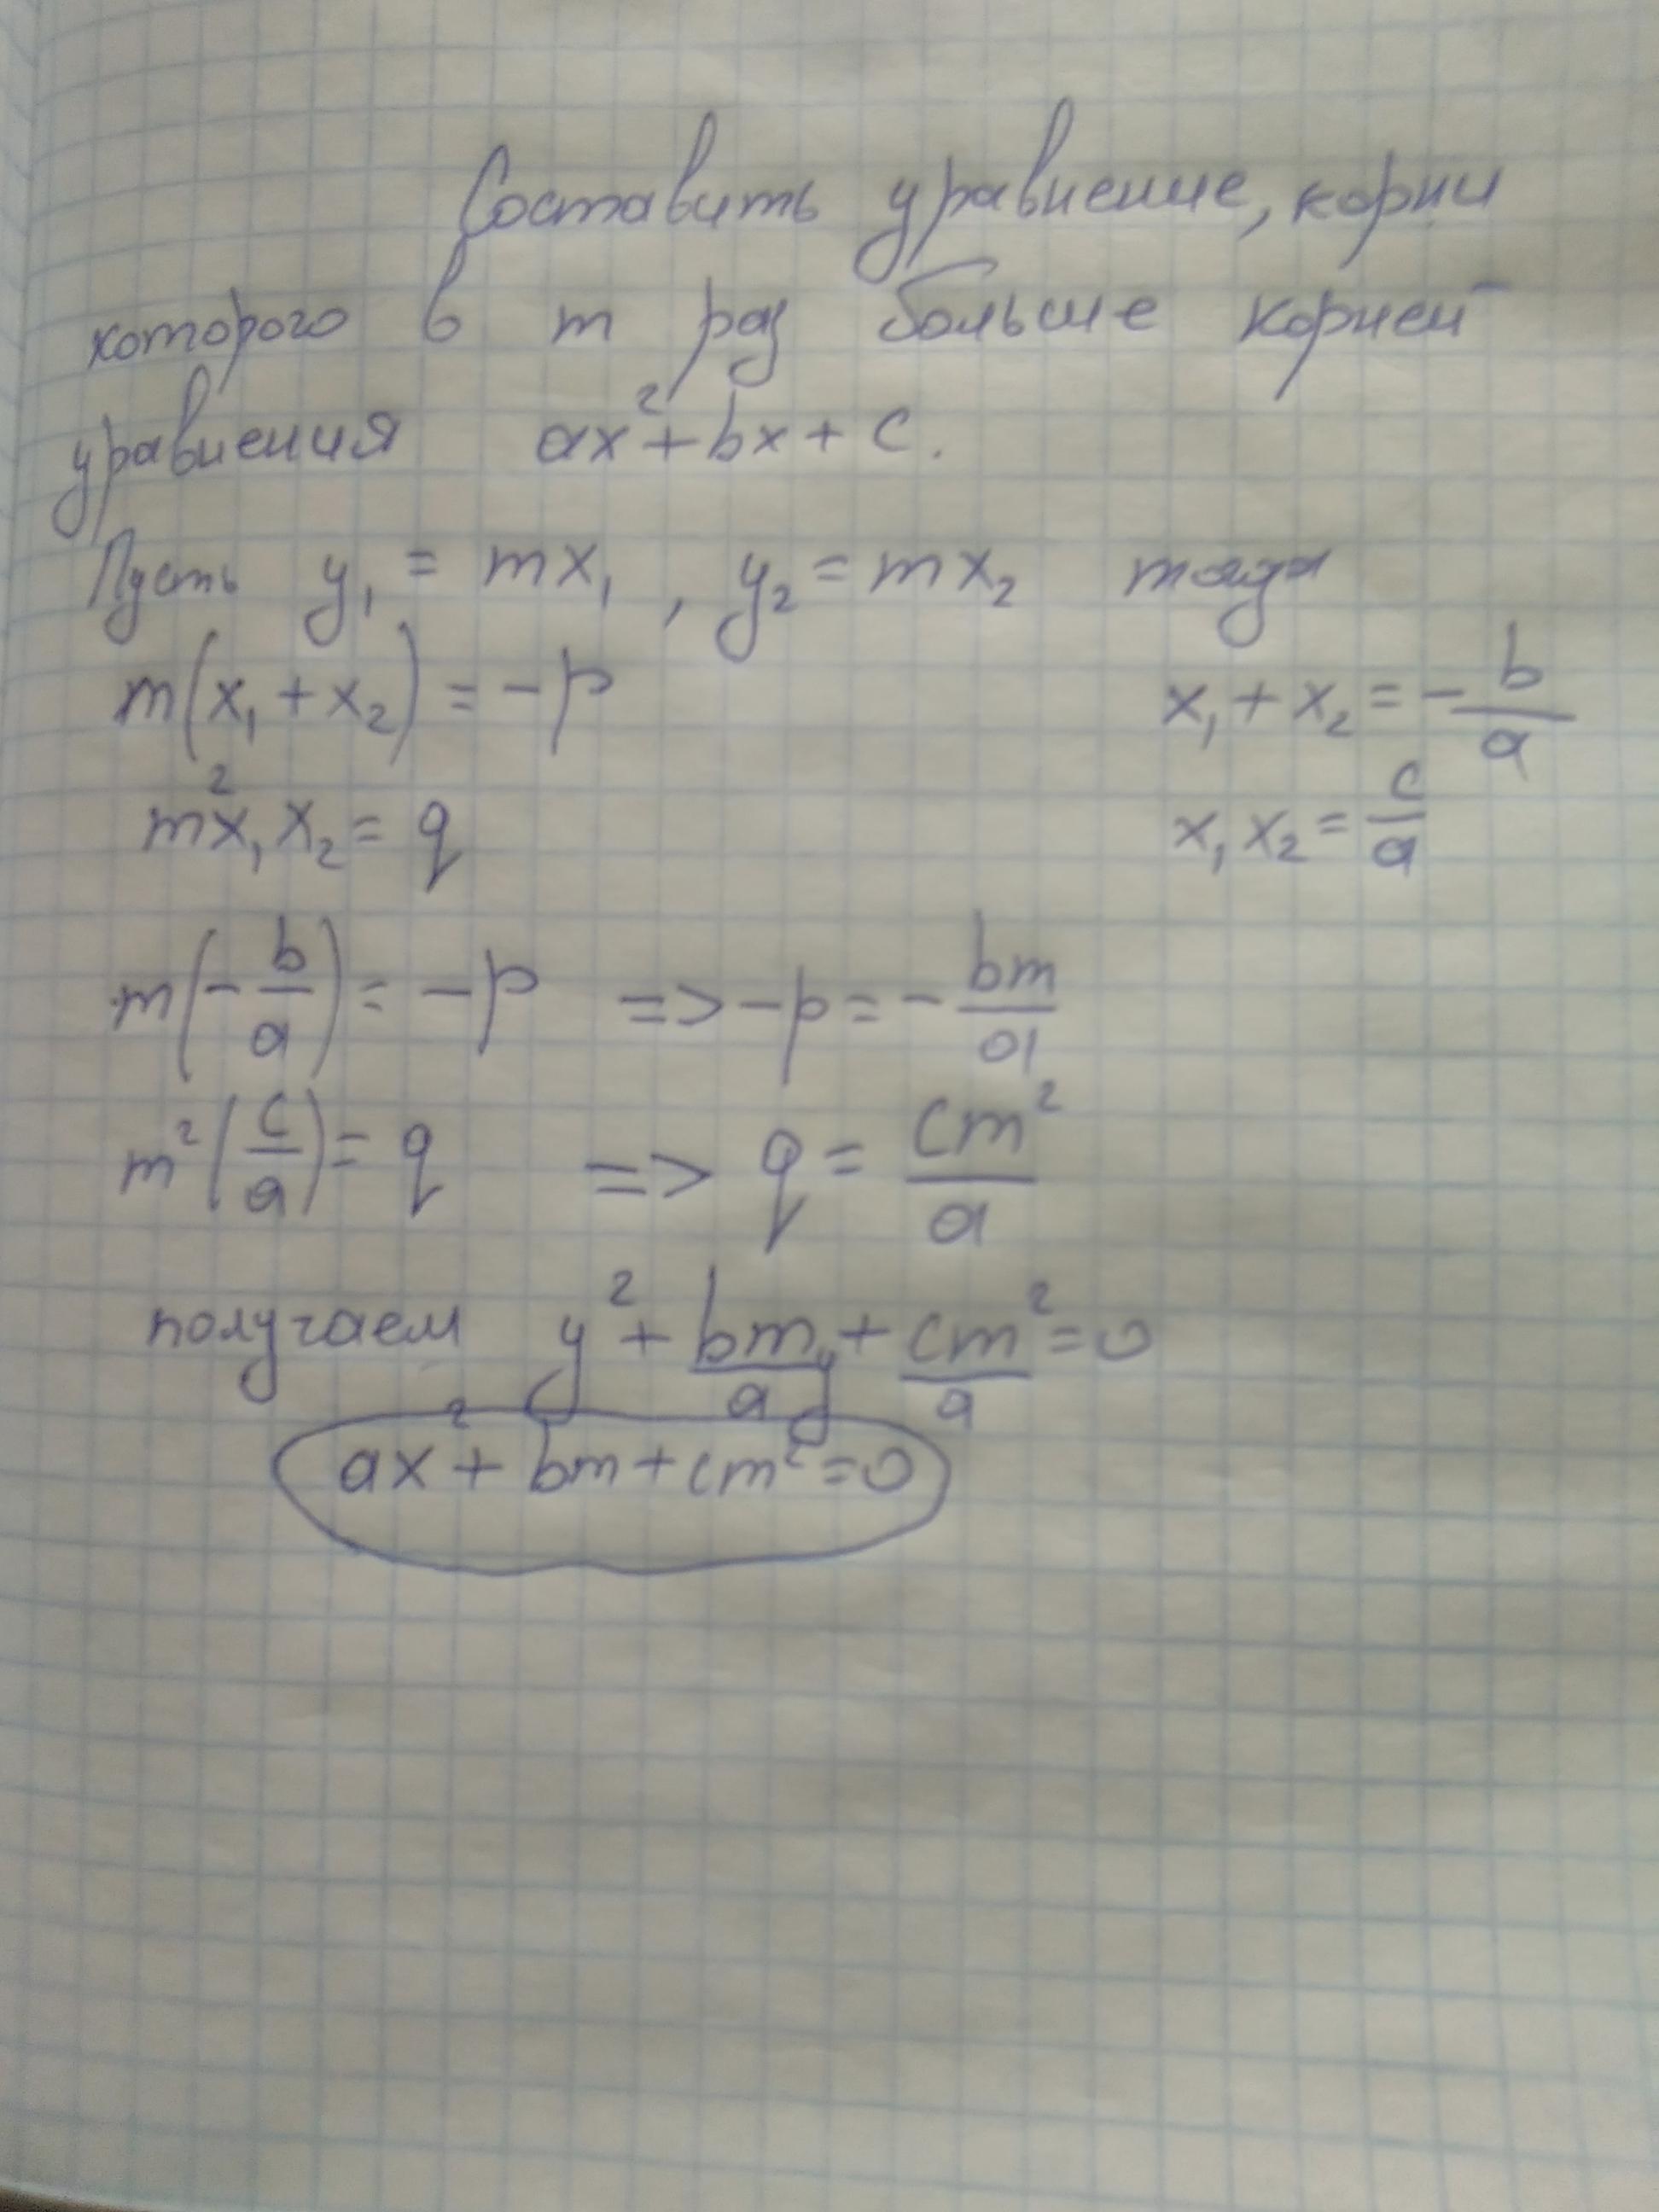 Составить уравнение, корни
которого в m раз больше корней
уравнения ax²+bx+c.
Пусть y₁ = mx₁, y₂ = mx₂ тогда
m(x₁+x₂) = -p x₁+x₂ = -b/a
m²x₁x₂ = q x₁x₂ = c/a
m(-b/a) = -p => -p = -bm/a
m²(c/a) = q => q = cm²/a
получаем y² + bm/a y + cm²/a = 0
ax² + bm + cm² = 0